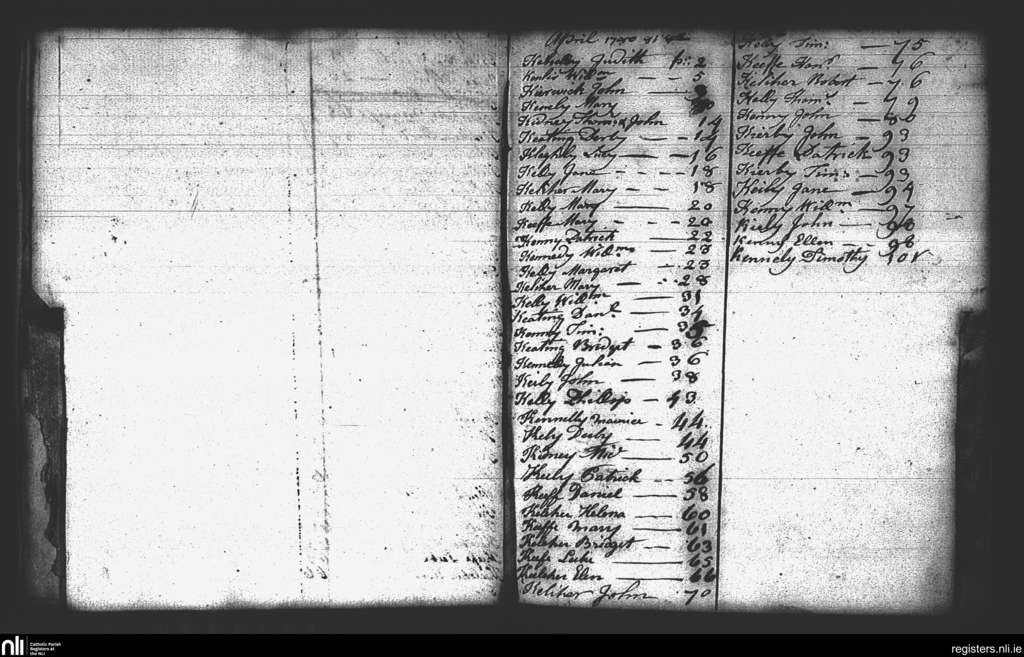 April 1780 81 82
Kelleley Judith pr: 2
Kenlis Willm — — 5
Kierwick John — 9
Kenely Mary
Kidney Thomas & John 14
Keating Derby — — 14
Lucy — — 16
Keily Jane — — — 18
Kelcher Mary — — 18
Kelly Mary — 20
Keeffe Mary — — — 20
Kenny Patrick — 22
Kennedy Willm: — 23
Kelly Margaret — 23
Keliher Mary — 28
Kelly Willm — 31
Keating Danl — 31
Kenny Tim: — 35
Keating Bridget — 36
Kennely Julian — 36
Keily John — 38
Kelly Phillip — 43
Kennelly Maurice — 44
Kely Derby — 44
Kidney Micl — 50
Keily Patrick — 56
Keeffe Daniel — 58
Kelcher Helena — 60
Keeffe Mary — 61
Kelcher Bridget — 63
Keefe — 65
Kelcher Elen — 66
Keliher John — 70
Kely Tim: — 75
Keeffe Thoms — 76
Keliher Robert — 76
Kelly Thoms — 79
Kenny John — 80
Kierby John — 93
Keeffe Patrick 93
Kierby Tim: — 93
Keily Jane — 94
Kenny Willm — 97
Kiely John — 98
Kenny Ellen — 98
Kennely Timothy 101
nli
Catholic Parish
Registers at
the NLI
registers.nli.ie